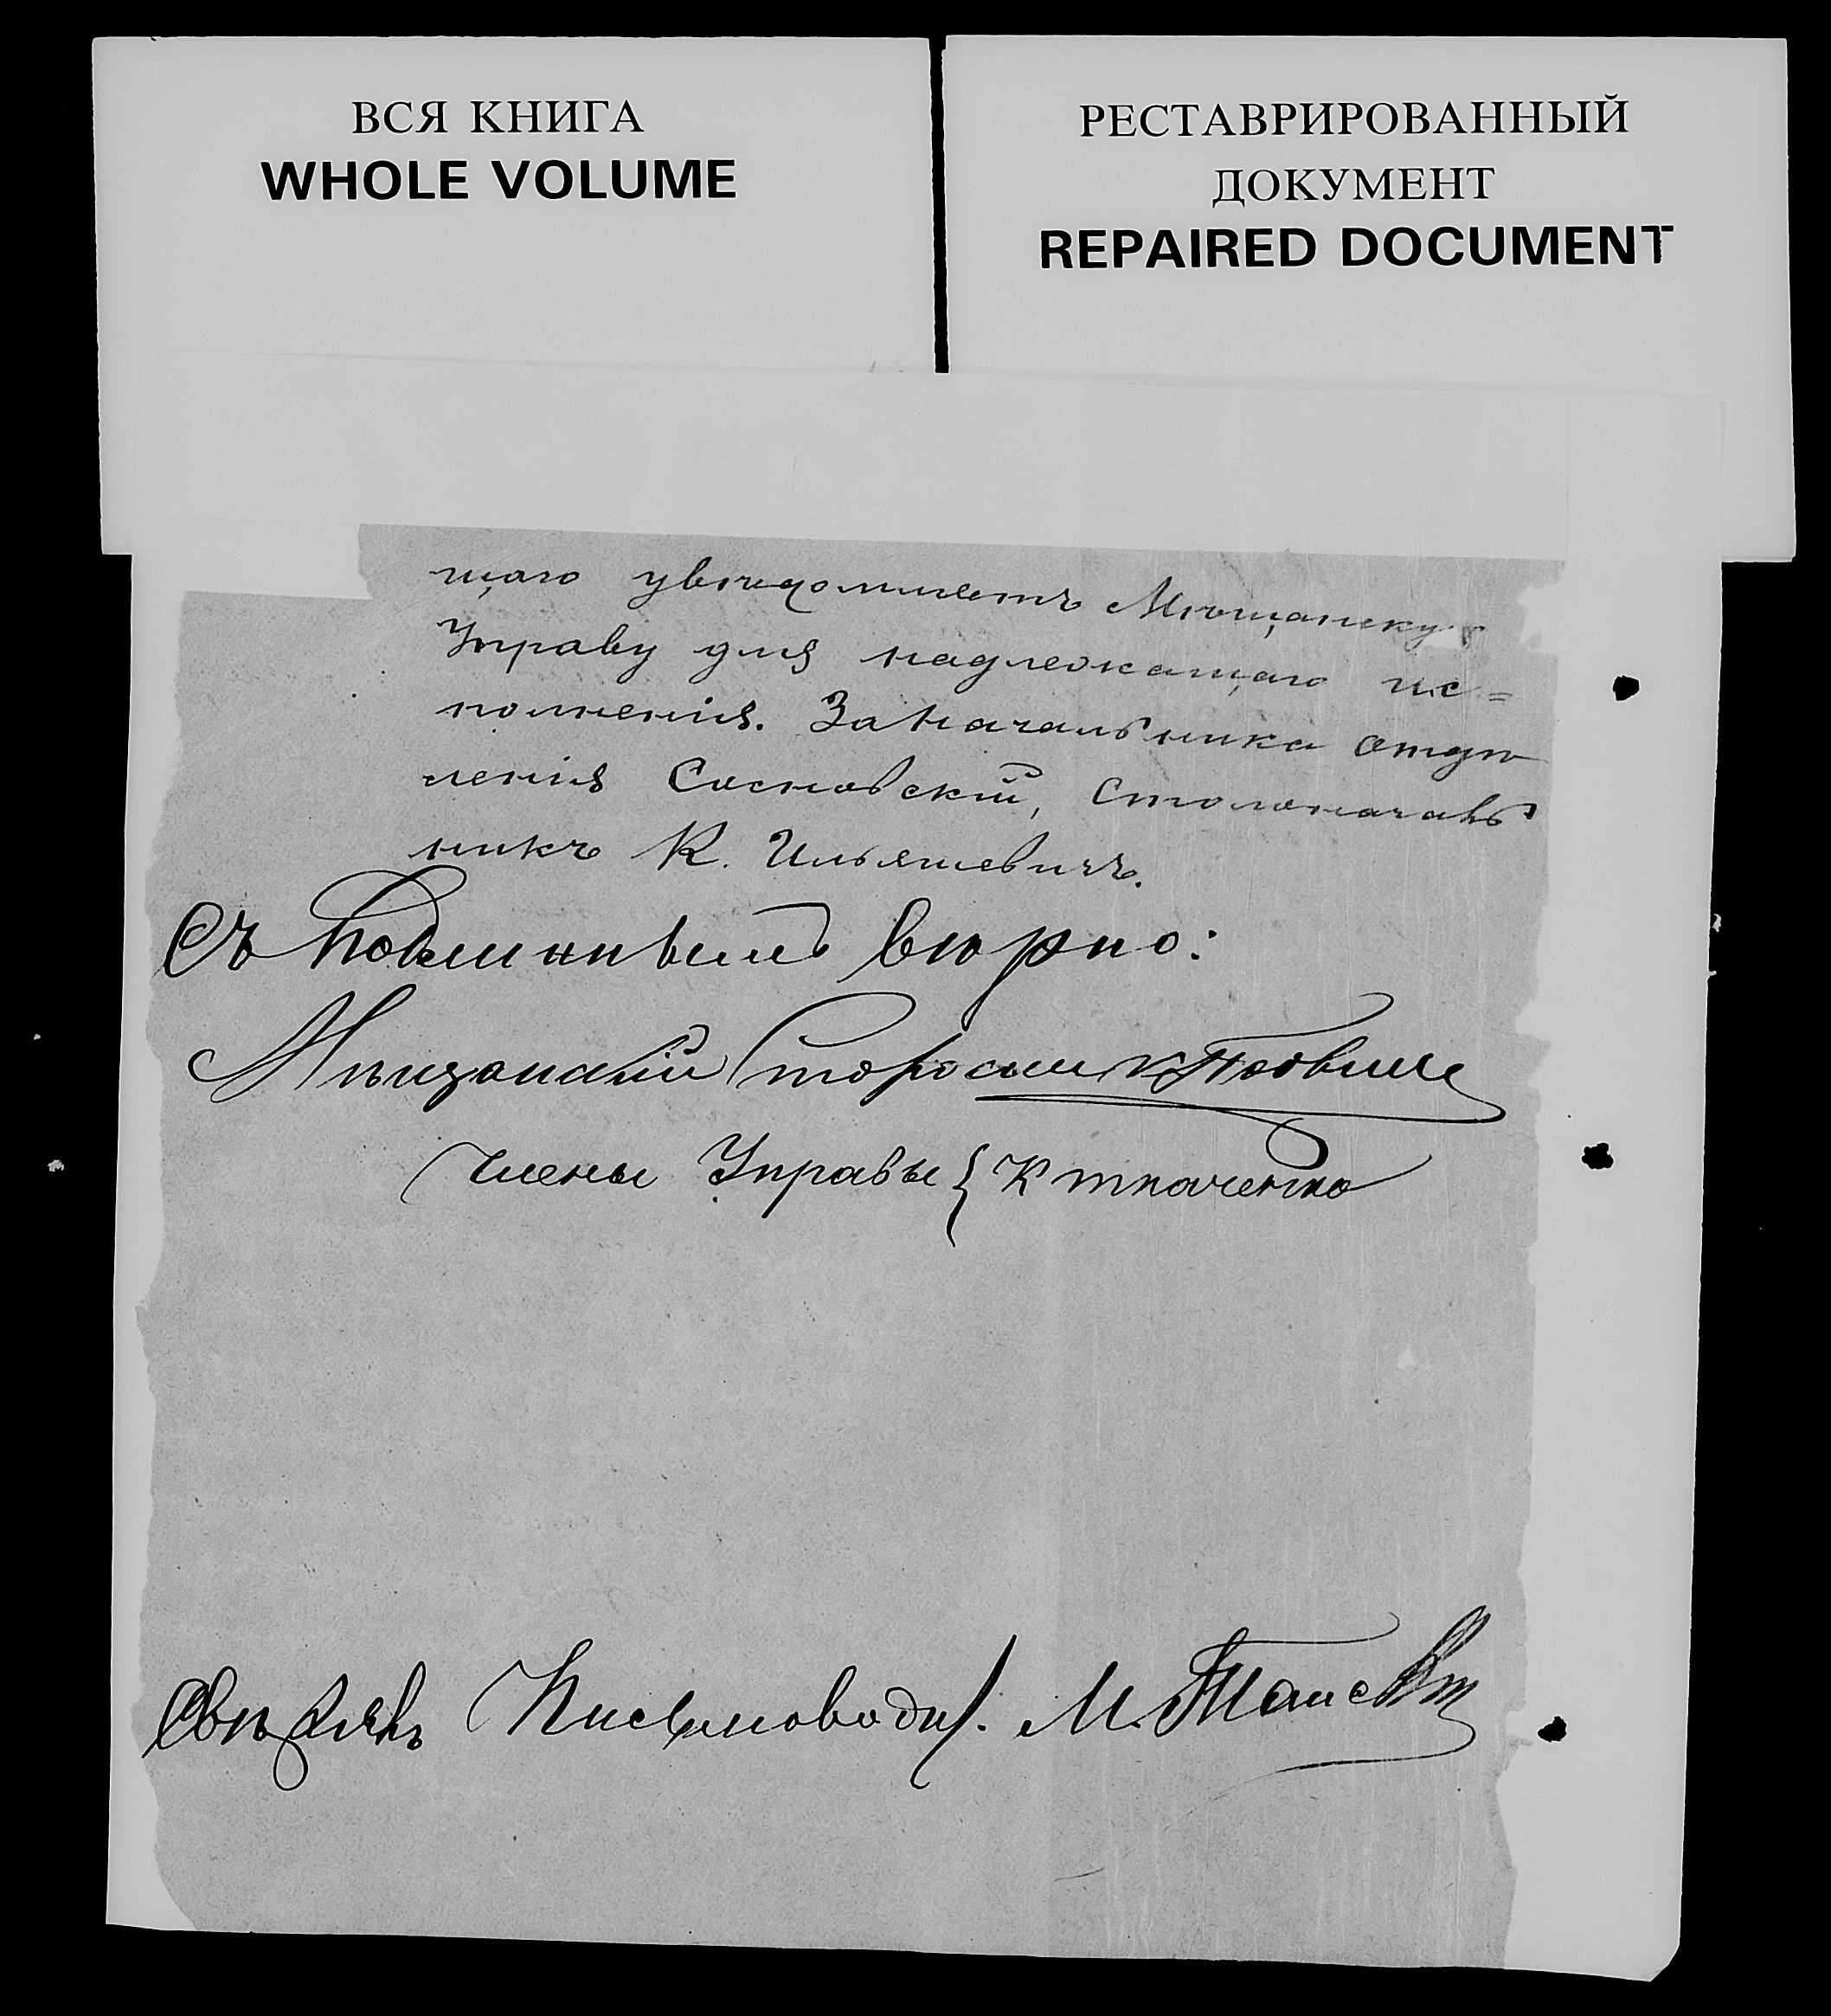 ВСЯ КНИГА
WHOLE VOLUME
РЕСТАВРИРОВАННЫЙ
ДОКУМЕНТ
REPAIRED DOCUMENT
щаго увѣдомляетъ Мѣщанскую
Управу для надлежащаго ис=
полненія. За Начальника Отдѣ
ленія Сосновскій, Столоначаль
никъ К. Ильяшевичъ.
Съ подлиннымъ вѣрно:
Мѣщанскій Староста
Члены Управы { К Ткаченко
Свѣрялъ Письмоводит. М.